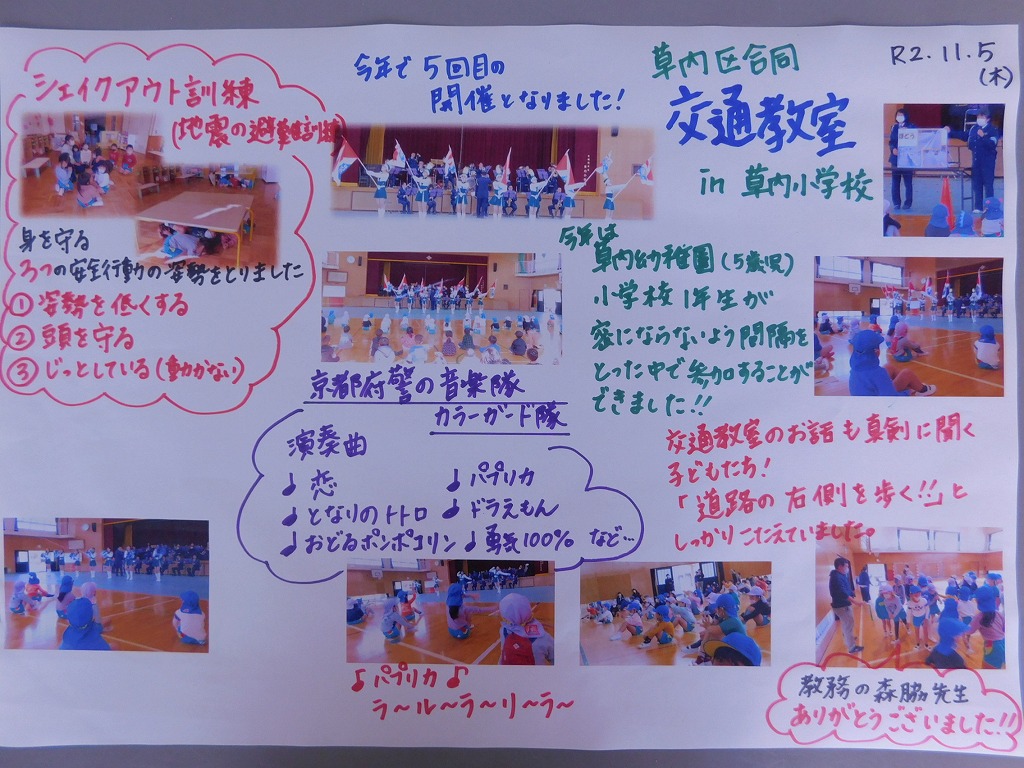 R2.11.5
(木)
草内区合同
交通教室
in 草内小学校
今年で5回目の
開催となりました!
シェイクアウト訓練
(地震の避難訓練)
身を守る
3つの安全行動の姿勢をとりました
① 姿勢を低くする
② 頭を守る
③ じっとしている(動かない)
今年は
草内幼稚園(5歳児)
小学校1年生が
密にならないよう間隔を
とった中で参加することが
できました!!
京都府警の音楽隊
カラーガード隊
演奏曲
♩恋
♩パプリカ
♩となりのトトロ
♩ドラえもん
♩おどるポンポコリン
♩勇気100% など…
交通教室のお話も真剣に聞く
子どもたち!
「道路の右側を歩く!!」と
しっかりこたえていました。
♪パプリカ♪
ラ~ル~ラ~リ~ラ~
教務の森脇先生
ありがとうございました!!